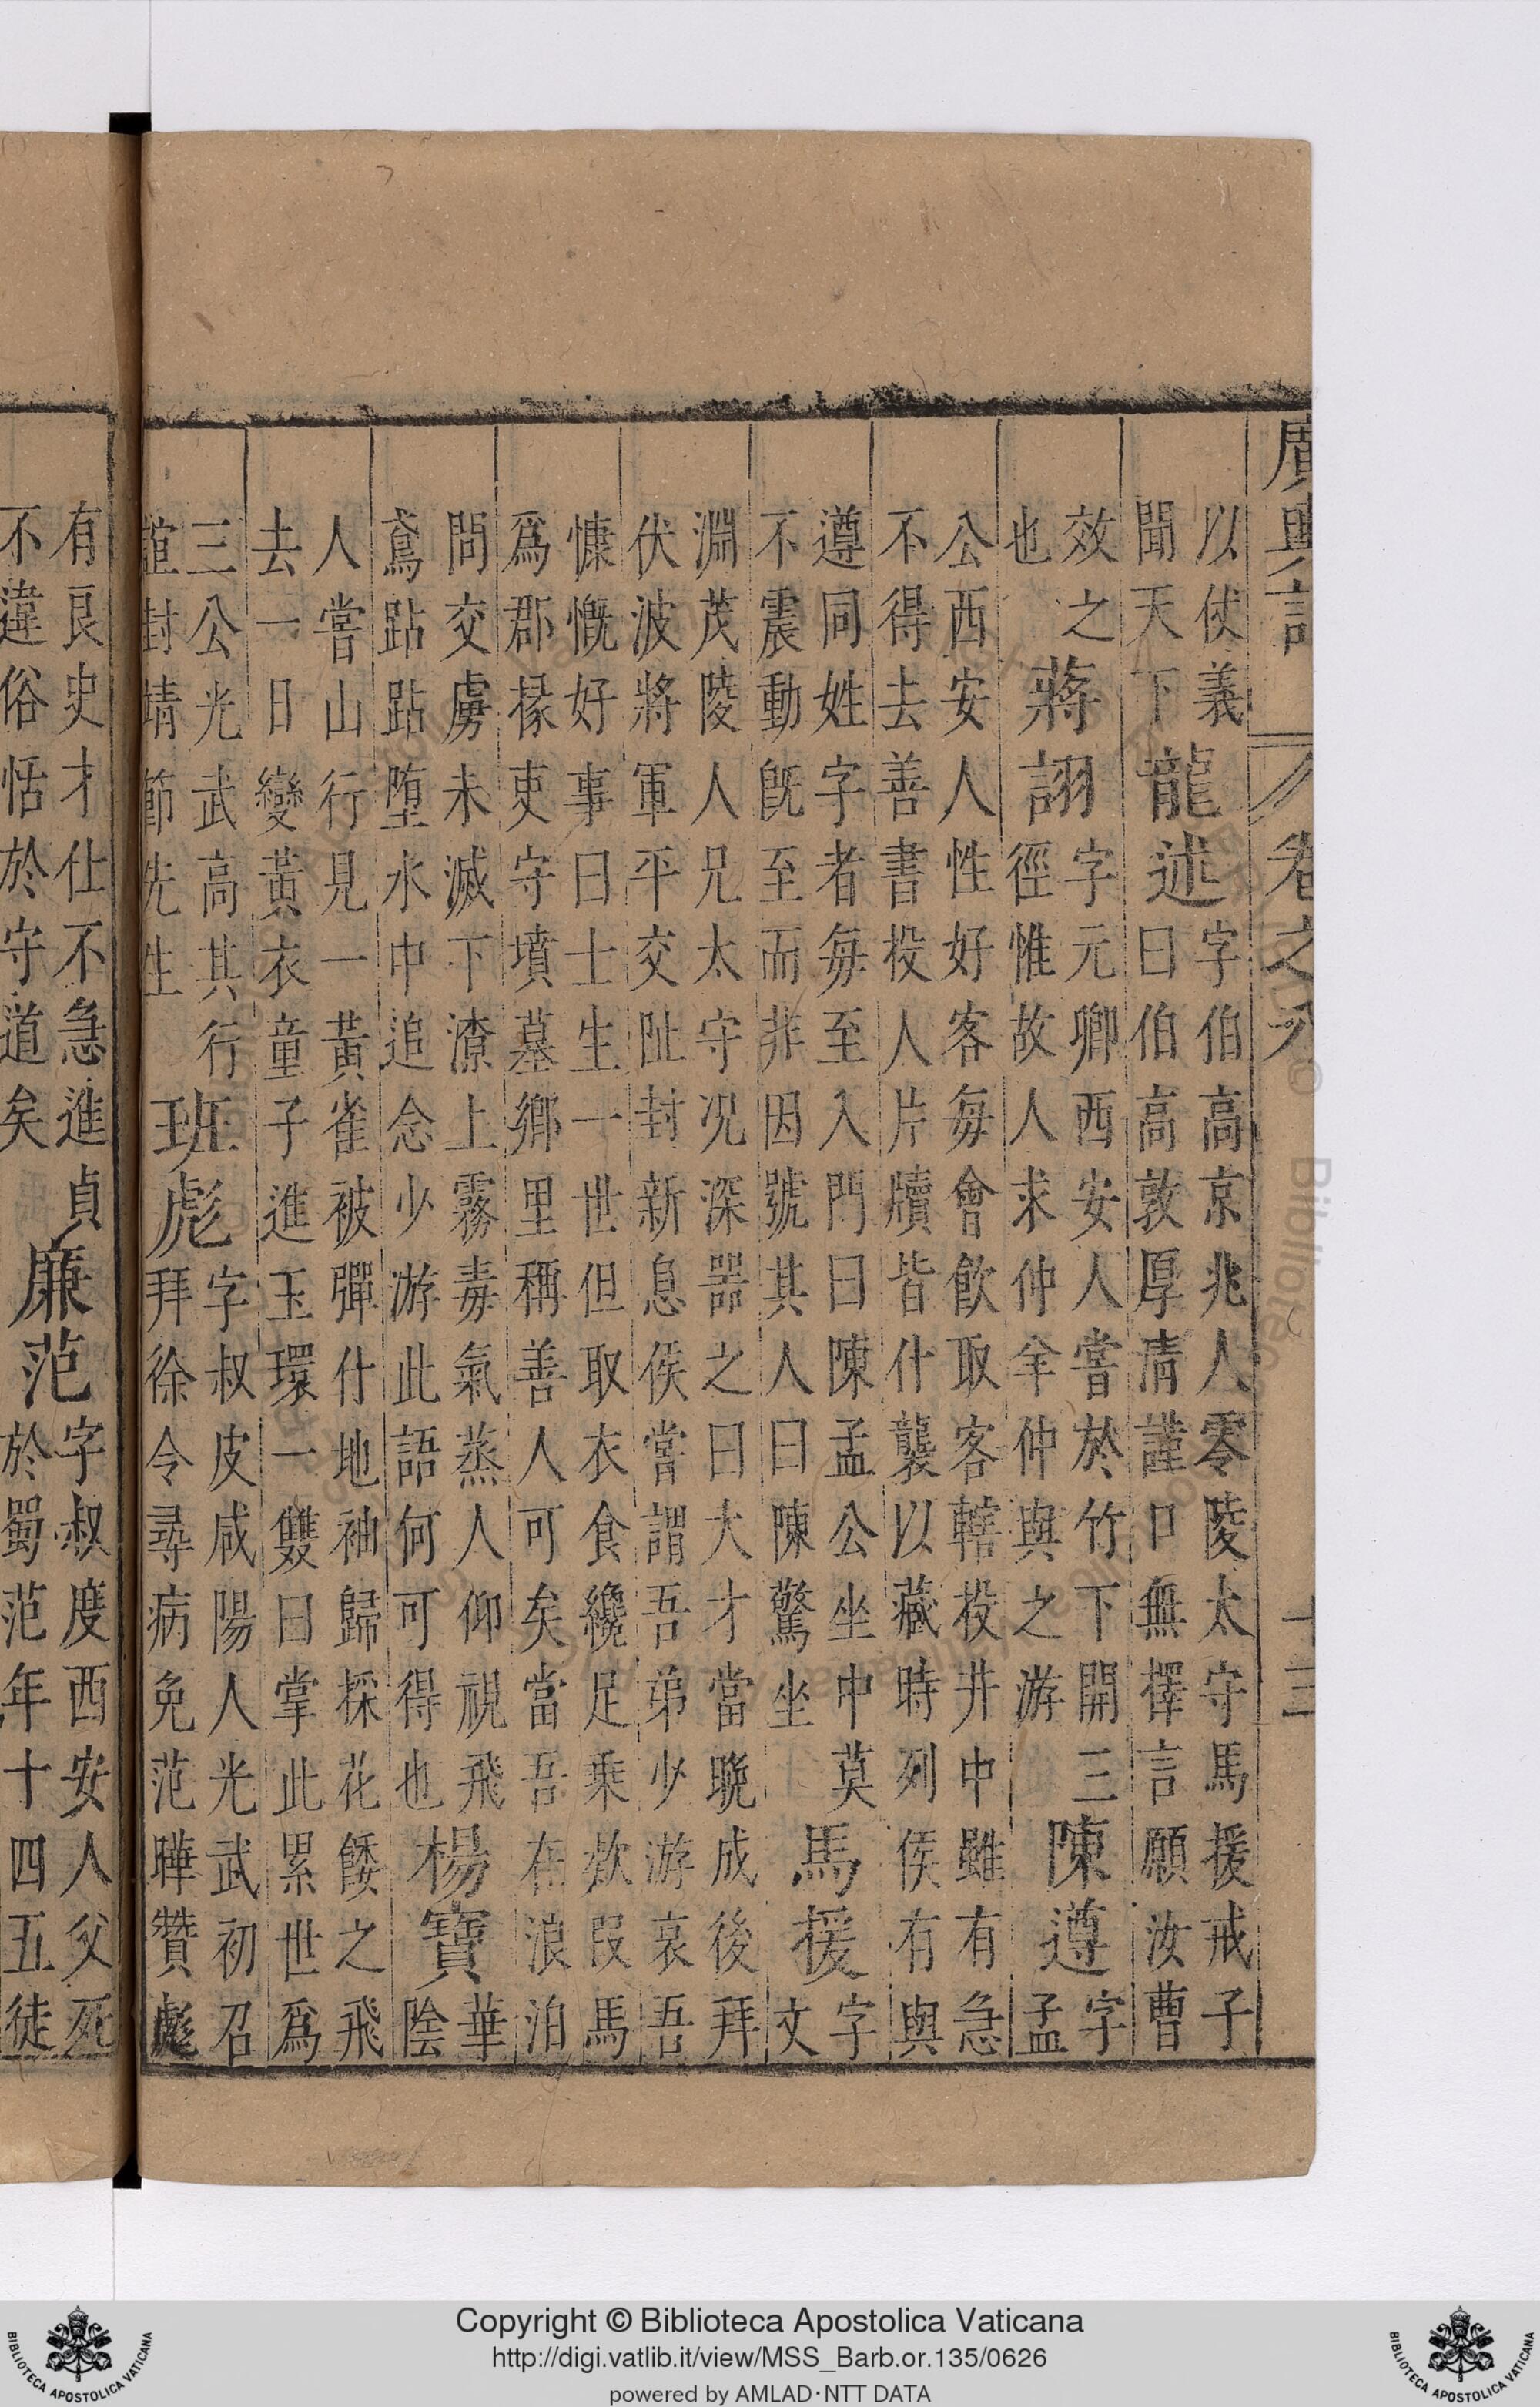 廣輿記 卷之八 十三
以仗義
聞天下
龍述
字伯高京兆人零陵太守馬援戒子
曰伯高敦厚清謹口無擇言願汝曹
效之
也
蔣詡
字元卿西安人嘗於竹下開三
徑惟故人求仲羊仲與之游
陳遵
字
孟
公西安人性好客每會飲取客轄投井中雖有急
不得去善書投人片牘皆什襲以藏時列侯有與
遵同姓字者每至入門曰陳孟公坐中莫
不震動旣至而非因號其人曰陳驚坐
馬援
字
文
淵茂陵人兄太守况深器之曰大才當晚成後拜
伏波將軍平交阯封新息侯嘗謂吾弟少游哀吾
慷慨好事曰士生一世但取衣食纔足乘款段馬
爲郡掾吏守墳墓鄉里稱善人可矣當吾在浪泊
問交虜未滅下潦上霧毒氣蒸人仰視飛
鳶跕跕堕水中追念少游此語何可得也
楊寶
華
陰
人嘗山行見一黃雀被彈仆地袖歸採花餧之飛
去一日變黃衣童子進玉環一雙曰掌此累世爲
三公光武高其行
誼封靖節先生
班彪
字叔皮咸陽人光武初召
拜徐令尋病免范曄贊彪
有良史才仕不急進貞
不違俗恬於守道矣
廉范
字叔度西安人父死
於蜀范年十四五徒
Copyright © Biblioteca Apostolica Vaticana
http://digi.vatlib.it/view/MSS_Barb.or.135/0626
powered by AMLAD·NTT DATA
BIBLIOTECA APOSTOLICA VATICANA
BIBLIOTECA APOSTOLICA VATICANA